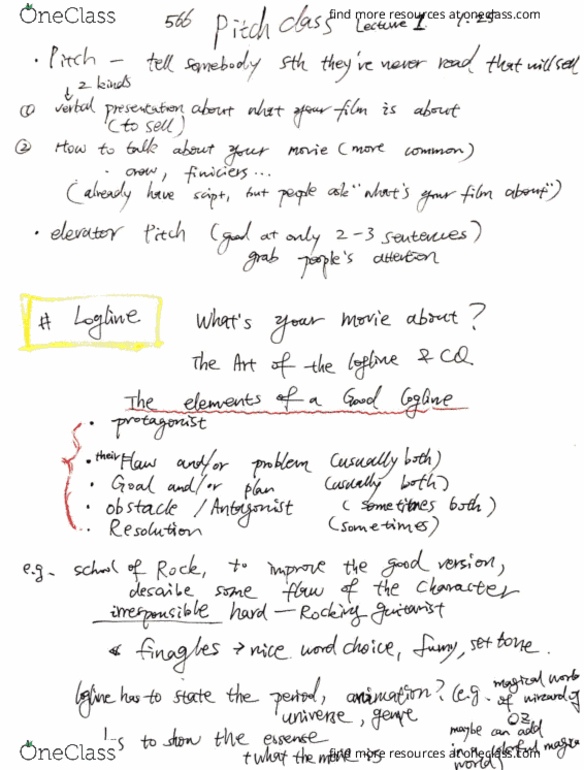 OneClass find more resources at oneclass.com
566 Pitch class Lecture 1
· Pitch — tell somebody sth they've never read that will sell
↓ 2 kinds
① verbal presentation about what your film is about
(to sell)
② How to talk about your movie (more common)
· crew, finiciers...
(already have scipt, but people ask "what's your film about")
· elevator Pitch (good at only 2-3 sentences)
grab people's attention
# Logline What's your movie about?
The Art of the logline & CQ
The elements of a Good Logline
· protagonist
· their Flaw and/or problem (usually both)
· Goal and/or plan (usually both)
· obstacle / Antagonist (sometimes both)
· Resolution (sometimes)
e.g. school of Rock, to improve the good version,
describe some flaw of the character
irresponsible hard — Rocking guitarist
& finagles → nice word choice, funny, set tone.
logline has to state the period, animation? (e.g. magical world
of wizard of
universe, genre OZ
maybe can add
in colorful magical
world)
to show the essense
+ what the
OneClass find more resources at oneclass.com